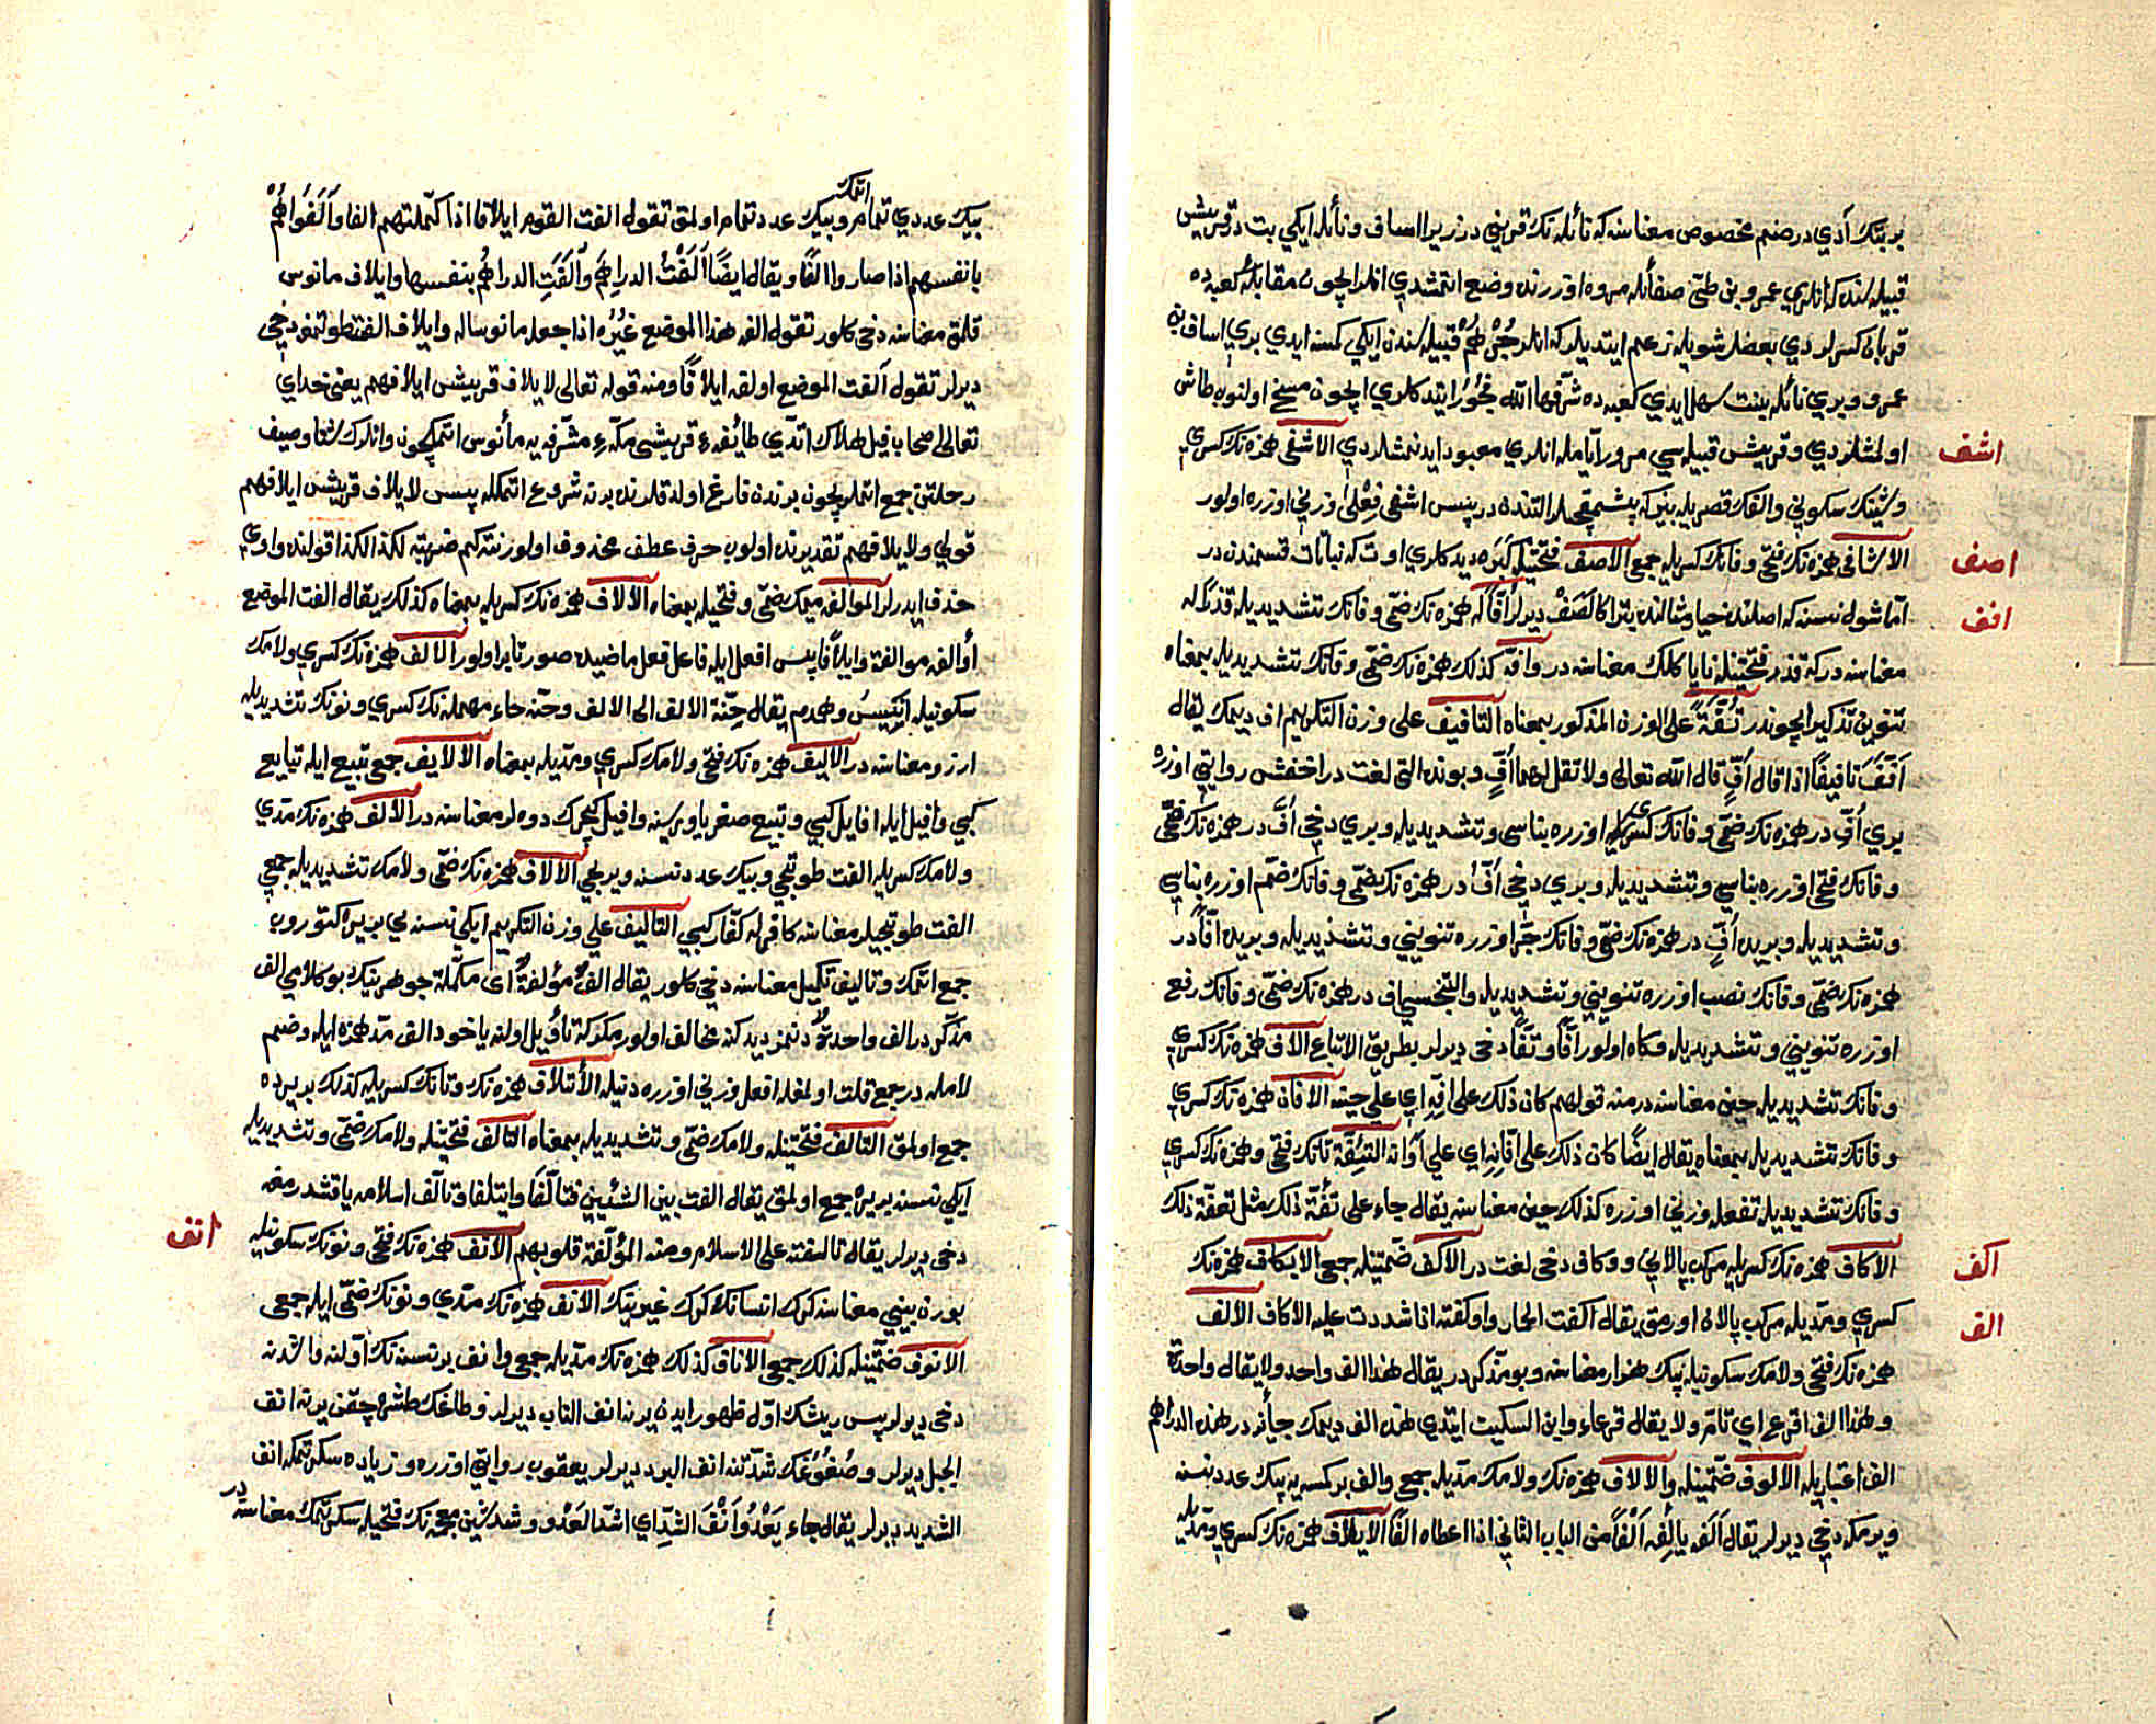 بر بتك آدي در صنم مخصوص معناسنه كه نائله نك قريني در زيرا اساف و نائله ايكي بت در قريش
قبيله سنده كه انلري عمرو بن طي صفا ايله مروه اوزرنده وضع ايتمشدي انلر ايچون مقابله كعبه ده
قربان كسرلردي بعضلر شويله زعم ايتديلر كه انلر جرهم قبيله سندن ايكي كمسه ايدي بري اساف بن
عمرو و بري نائله بنت سهل ايدي كعبه ده شرفها الله فجور ايتدكلري ايچون مسخ اولنوب طاش
اشف
اولمشلردي و قريش قبيله سي مرور ايامله انلري معبود ايدنمشلردي الاشفى همزه نك كسري
و شينك سكوني و الفك قصريله بيز كه پشمقجيلر التنده در پس اشفى فِعْلَى وزني اوزره اولور
اصف
الاشافى همزه نك فتحي و فانك كسريله جمعي الاصف فتحتيله كَبَره ديدكلري اوت كه نباتات قسمندن در
افف
اما شول نسنه كه اصلنده خيار مثالنده بتر اكا لَصَفْ ديرلر اُفًّا له همزه نك ضمي و فانك تشديديله قذرًا له
معناسنه در كه قذر فتحتيله ناپاكلك معناسنه در و افّه كذلك همزه نك ضمي و فانك تشديديله بمعناه
تنوين تذكير ايچوندر تُفَّةً على الوزن المذكور بمعناه التافيف على وزن التكريم اف ديمك يقال
اَفَّفَ تافيفًا اذا قال اُفٍّ قال الله تعالى ولا تقل لهما اُفٍّ و بونده التي لغت در اخفش روايتي اوزره
بري اُفِّ در همزه نك ضمي و فانك كسري اوزره بناسي و تشديديله و بري دخي اُفَّ در همزه نك ضمي
و فانك فتحي اوزره بناسي و تشديديله و بري دخي اُفُّ در همزه نك ضمي و فانك ضم اوزره بناسي
و تشديديله و بريده اُفٍّ در همزه نك ضمي و فانك جر اوزره تنويني و تشديديله و بريده افًّا در
همزه نك ضمي و فانك نصب اوزره تنويني و تشديديله والتنجسي اف در همزه نك ضمي و فانك رفع
اوزره تنويني و تشديديله و كاه اولور افًّا و تفًّا دخي ديرلر بطريق الاتباع الاف همزه نك كسري
و فانك تشديديله حين معناسنه در منه قولهم كان ذلك على افّه اي على حينه الافان همزه نك كسري
و فانك تشديديله بمعناه يقال ايضًا كان ذلك على افّانه اي على اوانه التئفّة تانك فتحي و همزه نك كسري
و فانك تشديديله تفعله وزني اوزره كذلك حين معناسنه يقال جاء على تئفّة ذلك مثل تعفّة ذلك
اكف
الاكاف همزه نك كسريله مركب پالاني و وكاف دخي لغت در الاكف ضمتيله جمعي الايكاف همزه نك
الف
كسري و مديله مركب پالان اورمق يقال اكفت الحمار و اوكفته اذا شددت عليه الاكاف الالف
همزه نك فتحي و لامك سكونيله بيك هزار معناسنه و بو مذكر در يقال هذا الف واحد ولا يقال واحدة
و هذا الف اقرع اي تام ولا يقال قرعاء و ابن السكيت ايتدي هذه الف ديمك جائز در هذه الدراهم
الف اعتباريله الالوف ضمتيله و الآلاف همزه نك و لامك مديله جمعي و الف بر كسنه يه بيك عدد نسنه
ويرمكه دخي ديرلر يقال اَلَفه يالفه اَلْفًا من الباب الثاني اذا اعطاه الفًا الايلاف همزه نك كسري و مديله
بيك عددي تمام ايتمك و بيك عدد تمام اولمق تقول الفت القوم ايلافا اذا كمّلتهم الفا و آلَفُوا هُمْ
بانفسهم اذا صاروا الفًا و يقال ايضًا آلَفْتُ الدراهِمَ و آلَفَتِ الدراهُم بنفسها و ايلاف مانوس
قلمق معناسنه دخي كلور تقول الفه هذا الموضع غيرُه اذا جعله مانوسا له و ايلاف الفت طوتمغه دخي
ديرلر تقول آلفت الموضع اولفه ايلافًا و منه قوله تعالى لايلاف قريش ايلافهم يعني خداي
تعالى اصحاب فيل هلاك اتدي طائفهء قريشي مكهء مشرفه يه مأنوس اتمكچون و انلرك شتا و صيف
رحلتن جمع اتملر يچون برندن فارغ اولدقلرنده برنه شروع اتمكله پس لايلاف قريش ايلافهم
قولي و لايلافهم تقديرنده اولوب حرف عطف محذوف اولور نته كم ضربته لكذا لكذا قولنده واوي
حذف ايدرلر المؤالفه ميمك ضمي و فتحيله بمعناه الالاف همزه نك كسريله بمعناه كذلك يقال الفت الموضع
أوالفه موالفة و ايلافًا پس افعل ايله فاعل فعل ماضيده صورتا بر اولور الالف همزه نك كسري و لامك
سكونيله انيس و همدم يقال حنّة الالف الى الالف و حنه حاء مهمله نك كسري و نونك تشديديله
ارزو معناسنه در الاليف همزه نك فتحي و لامك كسري و مديله بمعناه الالايف جمعي تبيع ايله تبايع
كبي و افيل ايله افايل كبي و تبيع صغر ياوريسنه و افيل كيجرك دوه لر معناسنه در الآلف همزه نك مدي
و لامك كسريله الفت طوتيجي و بيك عدد نسنه ويريجي الالاف همزه نك ضمي و لامك تشديديله جمعي
الفت طوتيجيلر معناسنه كافر له كفار كبي التاليف على وزن التكريم ايكي نسنه يي بر يره كتوروب
جمع اتمك و تاليف تكميل معناسنه دخي كلور يقال الفٌ مؤلفةٌ اى مكمّلة جوهرينك بو كلامي الف
مذكر در الف واحدةٌ دنمز ديدكنه مخالف اولور مكر كه تأويل اولنه ياخود الف مد همزه ايله و ضم
لامله در جمع قلت اولمغله افعل وزني اوزره دنيله الأئتلاف همزه نك و تانك كسريله كذلك بر يرده
جمع اولمق التالف فتحتيله و لامك ضمي و تشديديله بمعناه التالف فتحتيله و لامك ضمي و تشديديله
ايكي نسنه بر يره جمع اولمق يقال الفت بين الشيئين فتالّفا و ايتلفا و تالف اسلامه ياقشدرمغه
انف
دخي ديرلر يقال تالفته على الاسلام و منه المؤلّفة قلوبهم الانف همزه نك فتحي و نونك سكونيله
بورن بيني معناسنه كرك انسانك كرك غيرينك الآنف همزه نك مدي و نونك ضمي ايله جمعي
الانوف ضمتيله كذلك جمعي الآناف كذلك همزه نك مديله جمعي و انف بر نسنه نك اولنه و اشدنه
دخي ديرلر پس ريشك اول ظهور ايدن يرنه انف الناب ديرلر و طاغك طشره چقن يرنه انف
الجبل ديرلر و صغوغك شدتنه انف البرد ديرلر يعقوب روايتي اوزره و زياده سكرتمكه انف
الشديد ديرلر يقال جاء يَعْدُو اَنْفَ الشدّاي اشد العَدْو و شد شين معجمه نك فتحيله سكرتمك معناسنه در